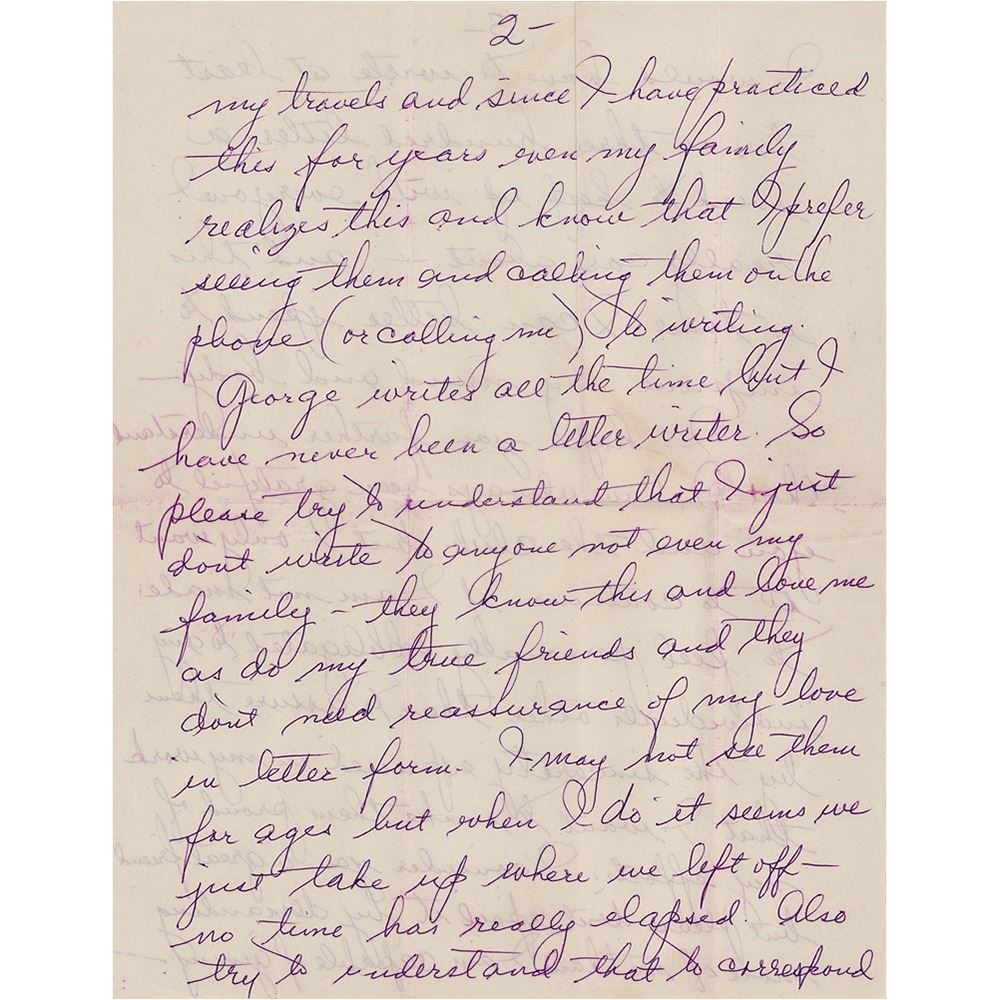 2-
my travels and since I have practiced
this for years even my family
realizes this and know that I prefer
seeing them and calling them on the
phone (or calling me) to writing.
George writes all the time but I
have never been a letter writer. So
please try to understand that I just
dont write to anyone not even my
family - they know this and love me
as do my true friends and they
don't need reassurance of my love
in letter-form. I may not see them
for ages but when I do it seems we
just take up where we left off-
no time has really elapsed. Also
try to understand that to correspond